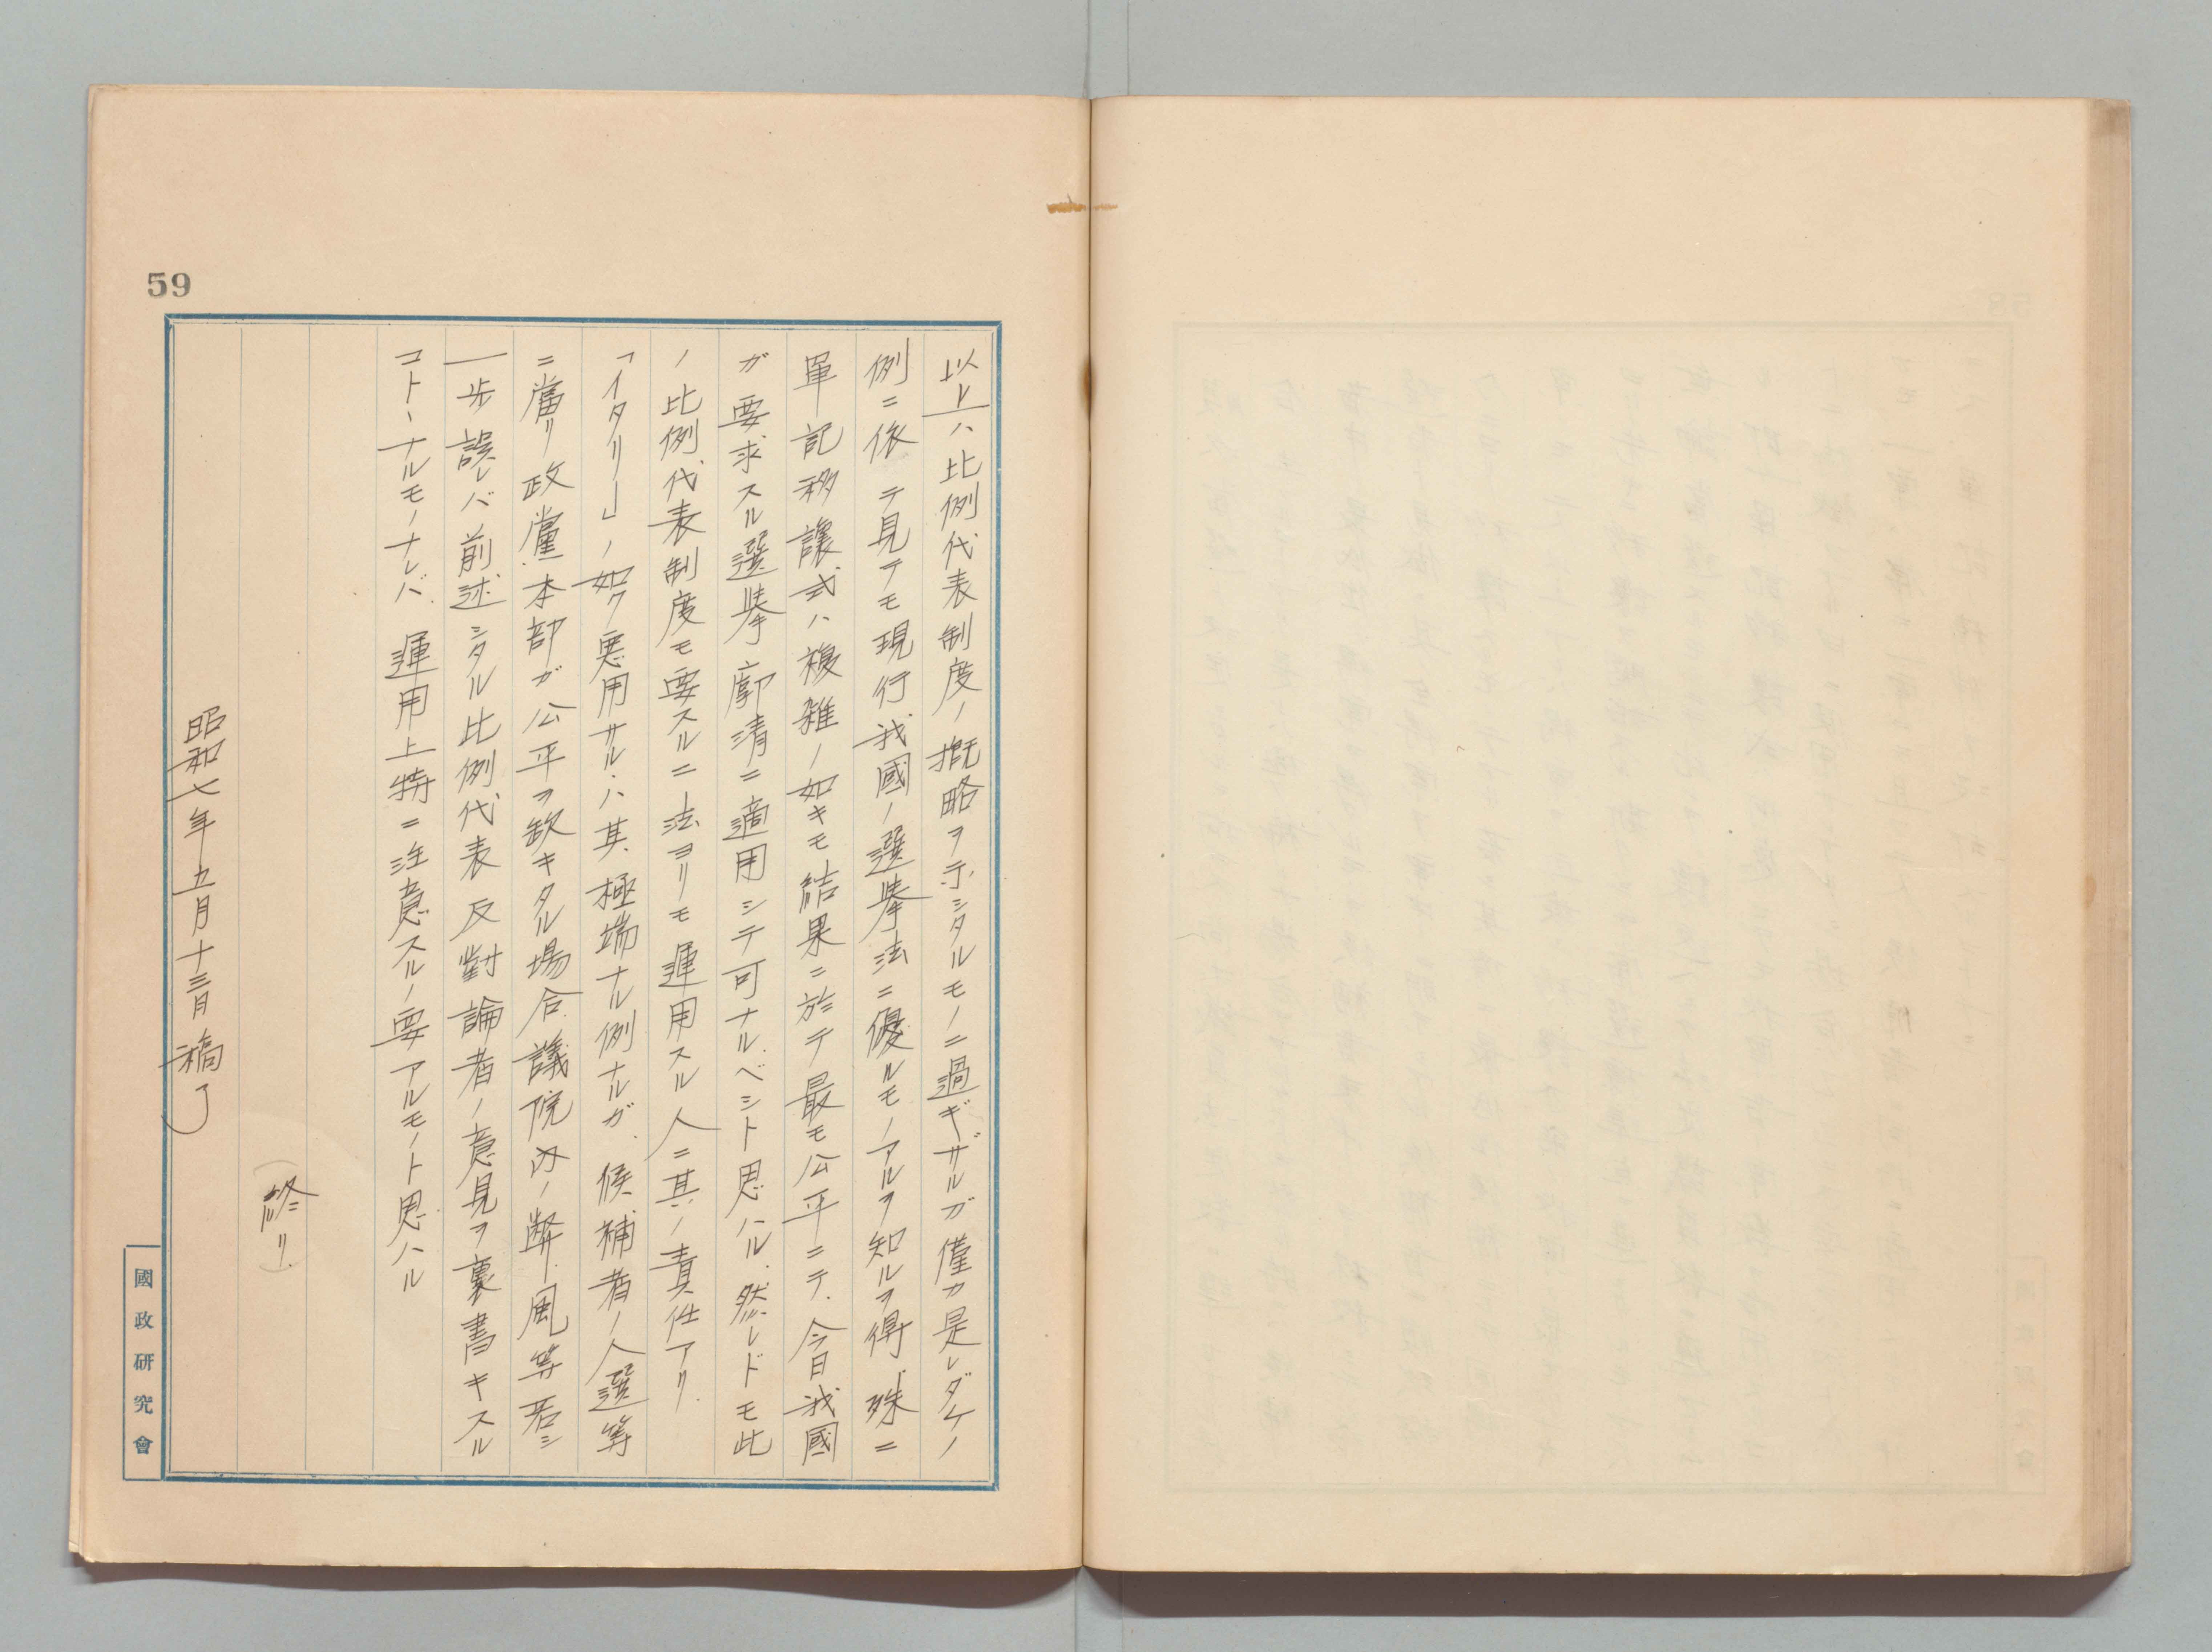 59
以上ハ比例代表制度ノ概略ヲ示シタルモノニ過ギザルガ僅カ是レダケノ
例ニ依テ見テモ現行我國ノ選挙法ニ優ルモノアルヲ知ルヲ得殊ニ
單記移讓式ハ複雑ノ如キモ結果ニ於テ最モ公平ニテ、今日我國
ガ要求スル選挙廓清ニ適用シテ可ナルベシト思ハル、然レドモ此
ノ比例代表制度モ要スルニ法ヨリモ運用スル人ニ其ノ責任アリ
「イタリー」ノ如ク悪用サルヽハ其極端ナル例ナルガ、候補者ノ人選等
ニ當リ政黨本部ガ公平ヲ欽キタル場合議院内ノ弊風等若シ
一歩誤レバ前述シタル比例代表反對論者ノ意見ヲ裏書キスル
コトヽナルモノナレバ、運用上特ニ注意スルノ要アルモノト思ハル
(終リ)
昭和七年五月十三日稿了
國政研究會